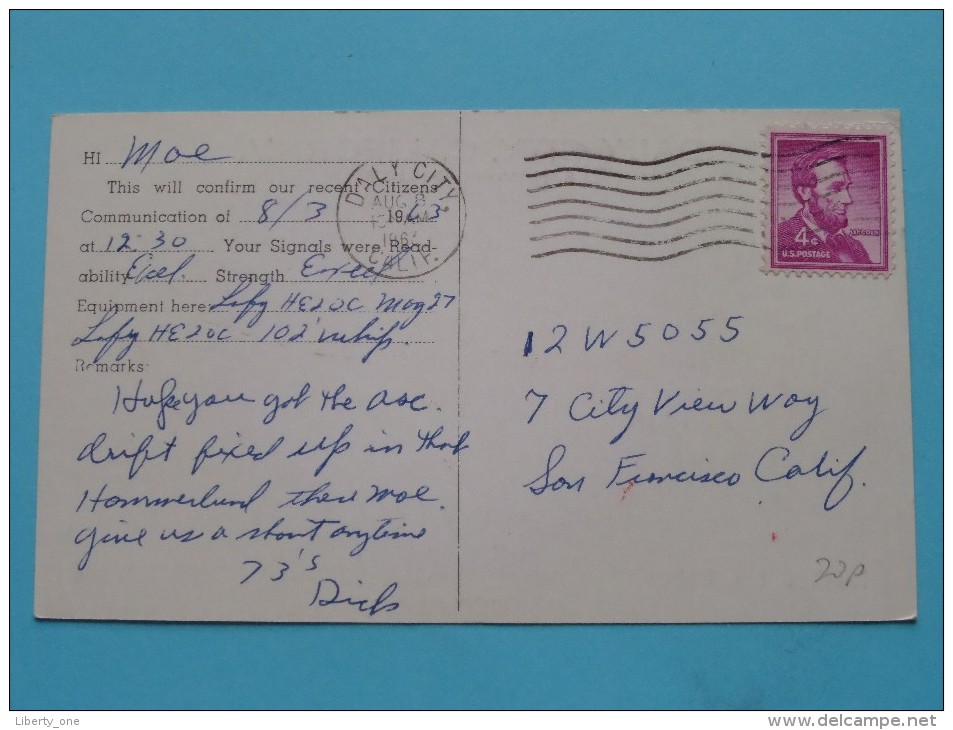 HI Moe
This will confirm our recent Citizens
Communication of 8/3 1963
at 12:30 Your Signals were, Read-
ability Excl. Strength
Equipment here: Lafy HE20C Mag 27
Lafy HE20C - 102" whip.
Remarks:
Hope you got the osc.
drift fixed up in that
Hammerlund there Moe.
give us a shout anytime
73's
Dick
DALY CITY
AUG 8
AM
CALIF.
4c LINCOLN
U.S. POSTAGE
12W5055
7 City View Way
San Francisco Calif.
Liberty_one
www.delcampe.net